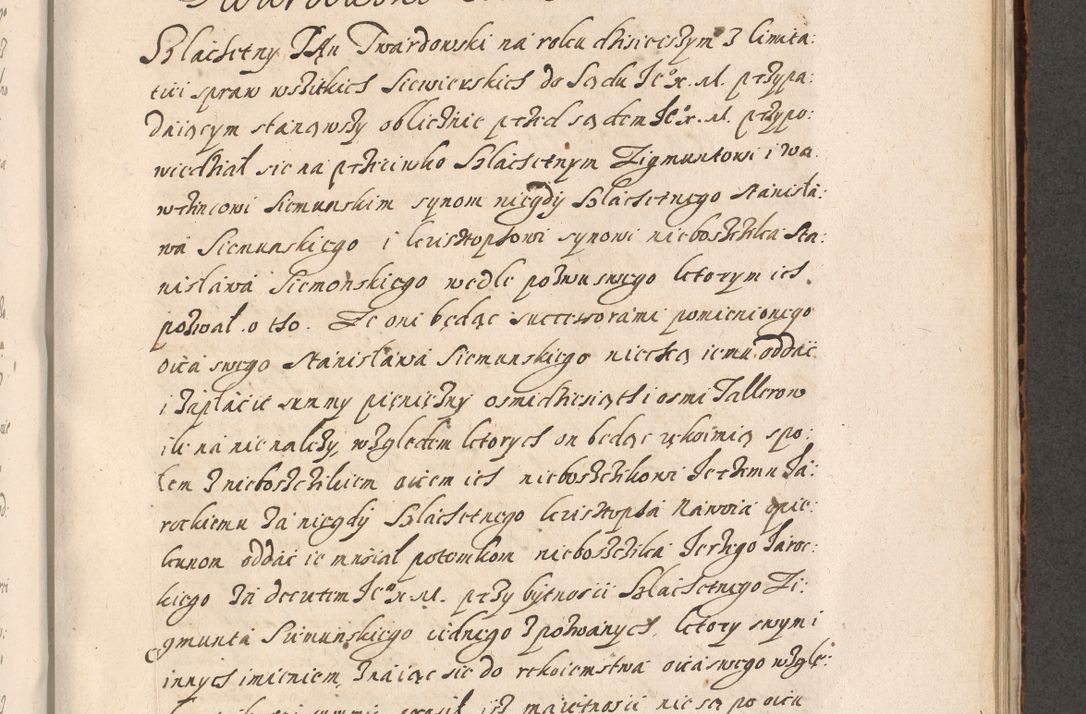 Szlachetny JAn Twardowski na roku dzisieyszym z limita:
tiei spraw wszitkich Siewierskich do Sądu Ic° x. M. przypa:
daiącym stanąwszy oblicznie przed sądem Ic° x. M. przypo:
wiedział sie na przeciwko Szlachetnym Zigmuntowi i Wa:
wrzincowi Siemunskim synom niegdy Szlachetnego Stanisła:
wa Siemunskiego i krisztophowi synowi nieboszczika Sta:
nisława Siemonskiego wedle pozwu swego ktorym ich
pozwał o tho. Ze oni będąc successorami pomienionego
oica swego Stanisława Siemunskiego niechcą iemu oddać
i zapłacić summy pieniężny osmidziesiąth i osmi Tallerow
ile na nie należy względem ktorych on będąc rękoimią spo:
łem z nieboszczikiem oicem ich nieboszczikowi Jerzemu Ja:
rockiemu za niegdy Szlachetnego krisztopha Nawoia opie:
kunom oddać ie musiał potomkom nieboszczika Jerzego Jaroc:
kiego za decretem Ic° x. M. przy bytnosci Szlachetnego Zi:
gmunta Siemunskiego iednego z pozwanych, ktory swym i
innych imieniem znaiąc sie do rekoiemstwa oica swego wzglę:
maietnosci nie są po oicu